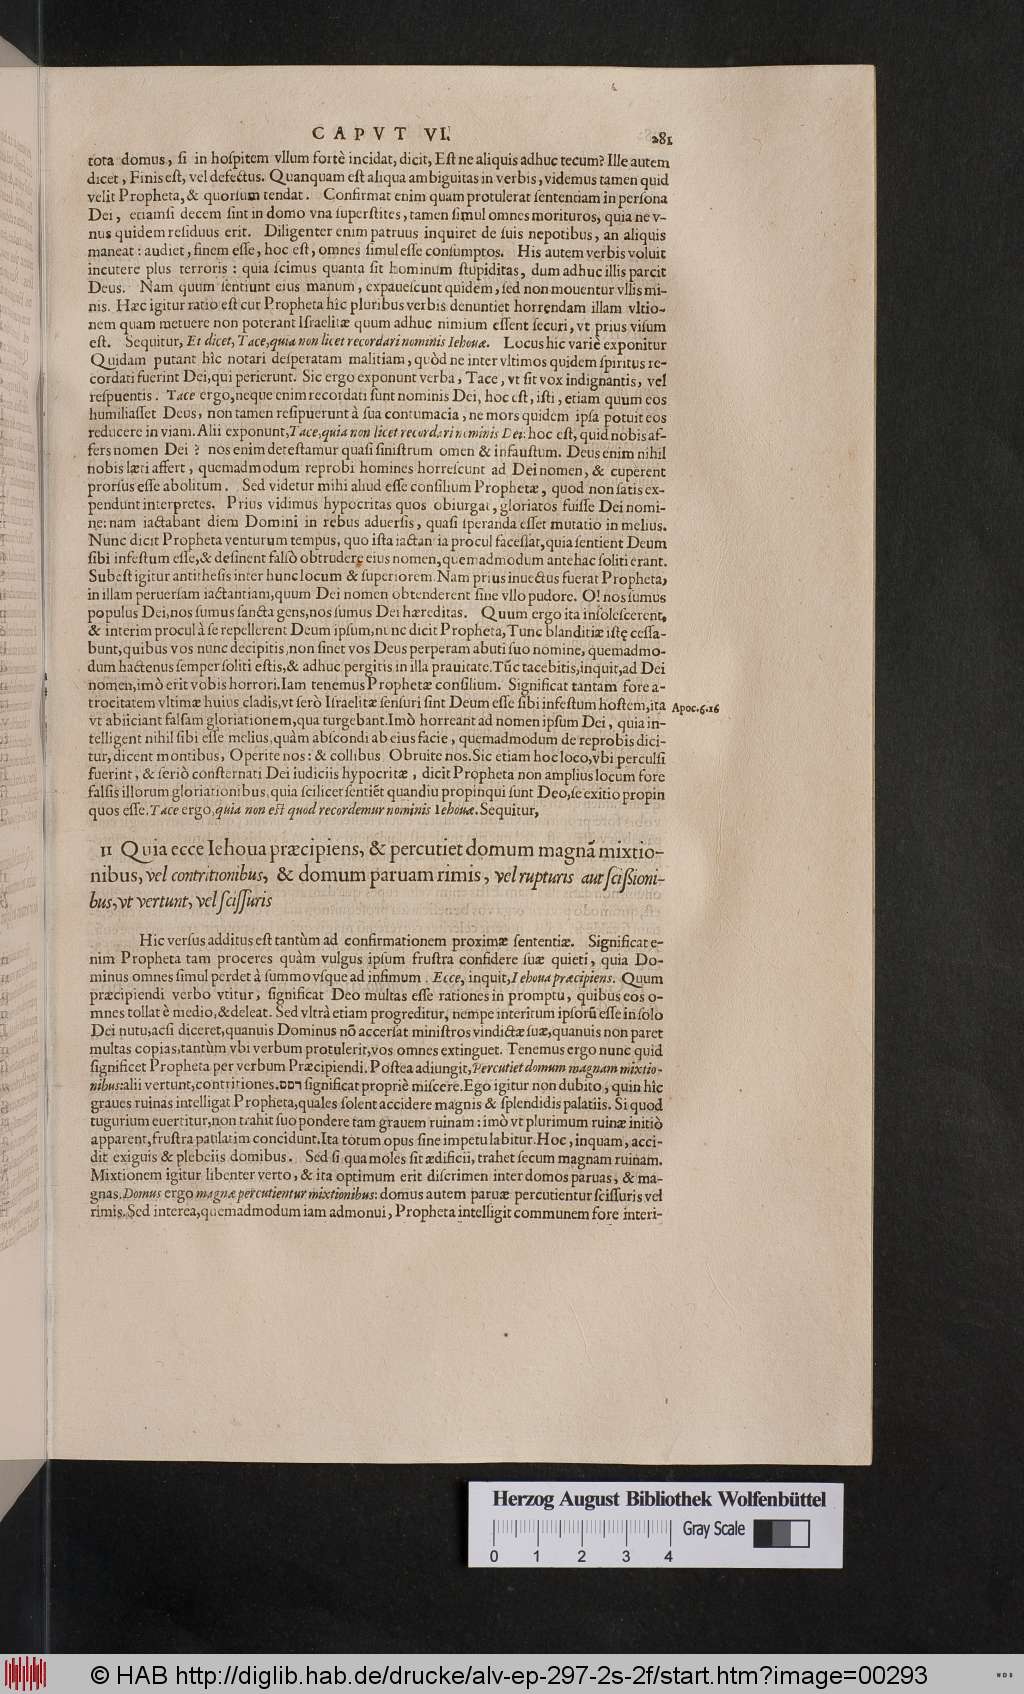 CAPVT VI. 281
tota domus, si in hospitem vllum fortè incidat, dicit, Est ne aliquis adhuc tecum? Ille autem
dicet, Finis est, vel defectus. Quanquam est aliqua ambiguitas in verbis, videmus tamen quid
velit Propheta, & quorsum tendat. Confirmat enim quam protulerat sententiam in persona
Dei, etiamsi decem sint in domo vna superstites, tamen simul omnes morituros, quia ne v-
nus quidem residuus erit. Diligenter enim patruus inquiret de suis nepotibus, an aliquis
maneat: audiet, finem esse, hoc est, omnes simul esse consumptos. His autem verbis voluit
incutere plus terroris: quia scimus quanta sit hominum stupiditas, dum adhuc illis parcit
Deus. Nam quum sentiunt eius manum, expauescunt quidem, sed non mouentur vllis mi-
nis. Hæc igitur ratio est cur Propheta hîc pluribus verbis denuntiet horrendam illam vltio-
nem quam metuere non poterant Israelitæ quum adhuc nimium essent securi, vt prius visum
est. Sequitur, Et dicet, Tace, quia non licet recordari nominis Iehouæ. Locus hic variè exponitur
Quidam putant hîc notari desperatam malitiam, quòd ne inter vltimos quidem spiritus re-
cordati fuerint Dei, qui perierunt. Sic ergo exponunt verba, Tace, vt sit vox indignantis, vel
respuentis. Tace ergo, neque enim recordati sunt nominis Dei, hoc est, isti, etiam quum eos
humiliasset Deus, non tamen resipuerunt à sua contumacia, ne mors quidem ipsa potuit eos
reducere in viam. Alii exponunt, Tace, quia non licet recordari nominis Dei: hoc est, quid nobis af-
fers nomen Dei? nos enim detestamur quasi sinistrum omen & infaustum. Deus enim nihil
nobis læti affert, quemadmodum reprobi homines horrescunt ad Dei nomen, & cuperent
prorsus esse abolitum. Sed videtur mihi aliud esse consilium Prophetæ, quod non satis ex-
pendunt interpretes. Prius vidimus hypocritas quos obiurgat, gloriatos fuisse Dei nomi-
ne: nam iactabant diem Domini in rebus aduersis, quasi speranda esset mutatio in melius.
Nunc dicit Propheta venturum tempus, quo ista iactantia procul facessat, quia sentient Deum
sibi infestum esse, & desinent falsò obtrudere eius nomen, quemadmodum antehac soliti erant.
Subest igitur antithesis inter hunc locum & superiorem. Nam prius inuectus fuerat Propheta,
in illam peruersam iactantiam, quum Dei nomen obtenderent sine vllo pudore. O! nos sumus
populus Dei, nos sumus sancta gens, nos sumus Dei hæreditas. Quum ergo ita insolescerent,
& interim procul à se repellerent Deum ipsum, nunc dicit Propheta, Tunc blanditiæ istę cessa-
bunt, quibus vos nunc decipitis, non sinet vos Deus perperam abuti suo nomine, quemadmo-
dum hactenus semper soliti estis, & adhuc pergitis in illa prauitate. Tūc tacebitis, inquit, ad Dei
nomen, imò erit vobis horrori. Iam tenemus Prophetæ consilium. Significat tantam fore a-
trocitatem vltimæ huius cladis, vt serò Israelitæ sensuri sint Deum esse sibi infestum hostem, ita
Apoc. 6.16
vt abiiciant falsam gloriationem, qua turgebant. Imò horreant ad nomen ipsum Dei, quia in-
telligent nihil sibi esse melius, quàm abscondi ab eius facie, quemadmodum de reprobis dici-
tur, dicent montibus, Operite nos: & collibus Obruite nos. Sic etiam hoc loco, vbi perculsi
fuerint, & seriò consternati Dei iudiciis hypocritæ, dicit Propheta non amplius locum fore
falsis illorum gloriationibus, quia scilicet sentiēt quandiu propinqui sunt Deo, se exitio propin
quos esse. Tace ergo, quia non est quod recordemur nominis Iehouæ. Sequitur,
11 Quia ecce Iehoua præcipiens, & percutiet domum magnā mixtio-
nibus, vel contritionibus, & domum paruam rimis, vel rupturis aut scissioni-
bus, vt vertunt, vel scissuris
Hic versus additus est tantùm ad confirmationem proximæ sententiæ. Significat e-
nim Propheta tam proceres quàm vulgus ipsum frustra confidere suæ quieti, quia Do-
minus omnes simul perdet à summo vsque ad infimum. Ecce, inquit, Iehoua præcipiens. Quum
præcipiendi verbo vtitur, significat Deo multas esse rationes in promptu, quibus eos o-
mnes tollat è medio, & deleat. Sed vltrà etiam progreditur, nempe interitum ipsorū esse in solo
Dei nutu, acsi diceret, quanuis Dominus nō accersat ministros vindictæ suæ, quanuis non paret
multas copias, tantùm vbi verbum protulerit, vos omnes extinguet. Tenemus ergo nunc quid
significet Propheta per verbum Præcipiendi. Postea adiungit, Percutiet domum magnam mixtio-
nibus: alii vertunt, contritiones. רסס significat propriè miscere. Ego igitur non dubito, quin hîc
graues ruinas intelligat Propheta, quales solent accidere magnis & splendidis palatiis. Si quod
tugurium euertitur, non trahit suo pondere tam grauem ruinam: imò vt plurimum ruinæ initiò
apparent, frustra paulatim concidunt. Ita totum opus sine impetu labitur. Hoc, inquam, acci-
dit exiguis & plebeiis domibus. Sed si qua moles sit ædificii, trahet secum magnam ruinam.
Mixtionem igitur libenter verto, & ita optimum erit discrimen inter domos paruas, & ma-
gnas. Domus ergo magnæ percutientur mixtionibus: domus autem paruæ percutientur scissuris vel
rimis. Sed interea, quemadmodum iam admonui, Propheta intelligit communem fore interi-
Herzog August Bibliothek Wolfenbüttel
Gray Scale
0 1 2 3 4
© HAB http://diglib.hab.de/drucke/alv-ep-297-2s-2f/start.htm?image=00293